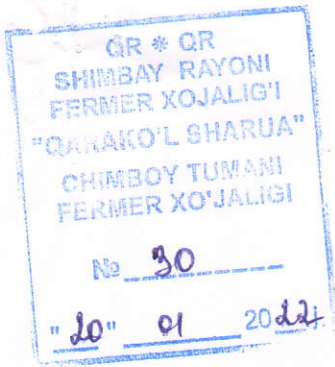 QR * QR
SHIMBAY RAYONI
FERMER XOJALIG'I
"QARAKO'L SHARUA"
CHIMBOY TUMANI
FERMER XO'JALIGI
№ 30
"20" 01 2022j.